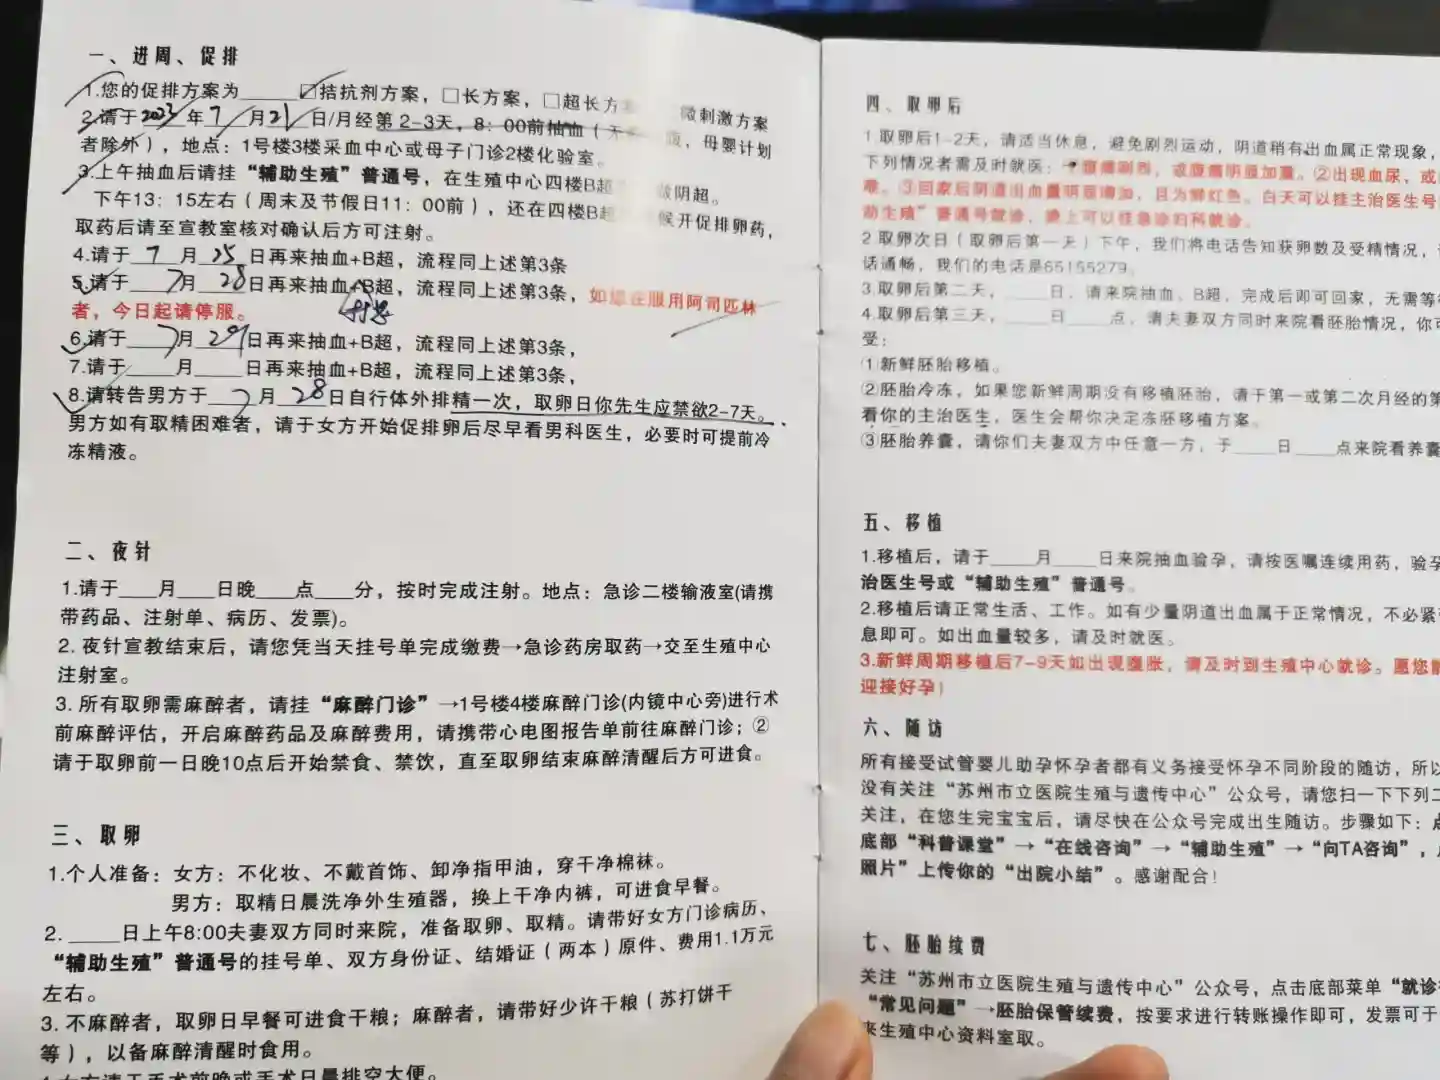 一、进周、促排
1.您的促排方案为____☑拮抗剂方案，□长方案，□超长方 微刺激方案
2.请于2023年7月21日/月经第 2-3天，8：00前抽血（ 母婴计划
者除外），地点：1号楼3楼采血中心或母子门诊2楼化验室。
3.上午抽血后请挂“辅助生殖”普通号，在生殖中心四楼B超 做阴超。
下午13：15左右（周末及节假日11：00前），还在四楼B超 候开促排卵药，
取药后请至宣教室核对确认后方可注射。
4.请于 7 月 25 日再来抽血+B超，流程同上述第3条
5.请于 7 月 28 日再来抽血+B超，流程同上述第3条，如您在服用阿司匹林
者，今日起请停服。
6.请于 7 月 29 日再来抽血+B超，流程同上述第3条，
7.请于____月____日再来抽血+B超，流程同上述第3条，
8.请转告男方于 7 月 28 日自行体外排精一次，取卵日你先生应禁欲2-7天。
男方如有取精困难者，请于女方开始促排卵后尽早看男科医生，必要时可提前冷
冻精液。
二、夜针
1.请于____月____日晚____点____分，按时完成注射。地点：急诊二楼输液室(请携
带药品、注射单、病历、发票)。
2. 夜针宣教结束后，请您凭当天挂号单完成缴费→急诊药房取药→交至生殖中心
注射室。
3. 所有取卵需麻醉者，请挂“麻醉门诊”→1号楼4楼麻醉门诊(内镜中心旁)进行术
前麻醉评估，开启麻醉药品及麻醉费用，请携带心电图报告单前往麻醉门诊；②
请于取卵前一日晚10点后开始禁食、禁饮，直至取卵结束麻醉清醒后方可进食。
三、取卵
1.个人准备：女方：不化妆、不戴首饰、卸净指甲油，穿干净棉袜。
男方：取精日晨洗净外生殖器，换上干净内裤，可进食早餐。
2. ____日上午8:00夫妻双方同时来院，准备取卵、取精。请带好女方门诊病历、
“辅助生殖”普通号的挂号单、双方身份证、结婚证（两本）原件、费用1.1万元
左右。
3. 不麻醉者，取卵日早餐可进食干粮；麻醉者，请带好少许干粮（苏打饼干
等），以备麻醉清醒时食用。
4.女方请于手术前晚或手术日晨排空大便。
四、取卵后
1.取卵后1-2天，请适当休息，避免剧烈运动，阴道稍有出血属正常现象，
下列情况者需及时就医：①腹痛剧烈，或腹痛明显加重。②出现血尿、或
③回家后阴道出血量明显增加，且为鲜红色。白天可以挂主治医生号
助生殖”普通号就诊，晚上可以挂急诊妇科就诊。
2.取卵次日（取卵后第一天）下午，我们将电话告知获卵数及受精情况，
话通畅，我们的电话是65155279。
3.取卵后第二天，____日，请来院抽血、B超，完成后即可回家，无需等
4.取卵后第三天，____日____点，请夫妻双方同时来院看胚胎情况，你可
受：
①新鲜胚胎移植。
②胚胎冷冻，如果您新鲜周期没有移植胚胎，请于第一或第二次月经的第
看你的主治医生，医生会帮你决定冻胚移植方案。
③胚胎养囊，请你们夫妻双方中任意一方，于____日____点来院看养囊
五、移植
1.移植后，请于____月____日来院抽血验孕，请按医嘱连续用药，验孕
治医生号或“辅助生殖”普通号。
2.移植后请正常生活、工作。如有少量阴道出血属于正常情况，不必紧
息即可。如出血量较多，请及时就医。
3.新鲜周期移植后7-9天如出现腹胀，请及时到生殖中心就诊。愿您
迎接好孕！
六、随访
所有接受试管婴儿助孕怀孕者都有义务接受怀孕不同阶段的随访，所以
没有关注“苏州市立医院生殖与遗传中心”公众号，请您扫一下下列二
关注，在您生完宝宝后，请尽快在公众号完成出生随访。步骤如下：点
底部“科普课堂”→“在线咨询”→“辅助生殖”→“向TA咨询”，
照片”上传你的“出院小结”。感谢配合！
七、胚胎续费
关注“苏州市立医院生殖与遗传中心”公众号，点击底部菜单“就诊
“常见问题”→胚胎保管续费，按要求进行转账操作即可，发票可于
来生殖中心资料室取。